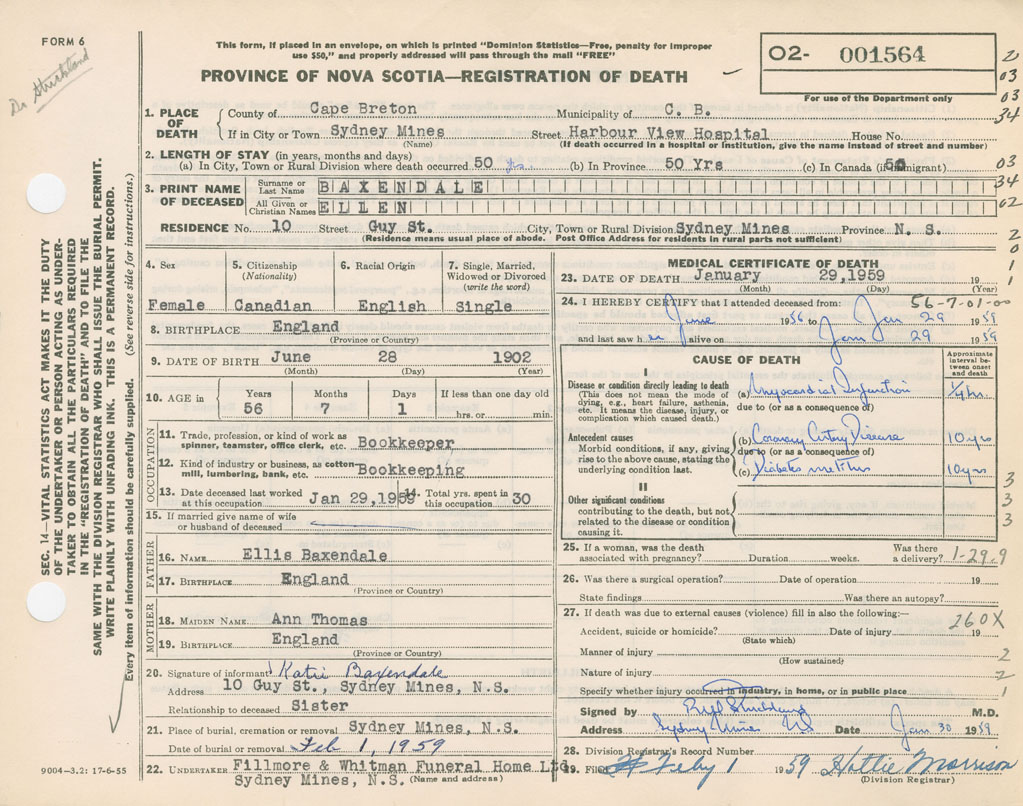 FORM 6
Dr Strickland
This form, if placed in an envelope, on which is printed "Dominion Statistics—Free, penalty for improper
use $50," and properly addressed will pass through the mail "FREE"
PROVINCE OF NOVA SCOTIA—REGISTRATION OF DEATH
02- 001564
For use of the Department only
2
03
03
34
03
34
02
2
0
1
1
SEC. 14—VITAL STATISTICS ACT MAKES IT THE DUTY
OF THE UNDERTAKER OR PERSON ACTING AS UNDER-
TAKER TO OBTAIN ALL THE PARTICULARS REQUIRED
IN THE "REGISTRATION OF DEATH" AND TO FILE THE
SAME WITH THE DIVISION REGISTRAR WHO SHALL ISSUE THE BURIAL PERMIT.
WRITE PLAINLY WITH UNFADING INK. THIS IS A PERMANENT RECORD.
Every item of information should be carefully supplied. (See reverse side for instructions.)
1. PLACE OF DEATH
County of Cape Breton Municipality of C. B.
If in City or Town Sydney Mines Street Harbour View Hospital House No.
(Name) (If death occurred in a hospital or institution, give the name instead of street and number)
2. LENGTH OF STAY (in years, months and days)
(a) In City, Town or Rural Division where death occurred 50 yrs (b) In Province 50 Yrs (c) In Canada (if immigrant) 50
3. PRINT NAME OF DECEASED
Surname or Last Name BAXENDALE
All Given or Christian Names ELLEN
RESIDENCE No. 10 Street Guy St. City, Town or Rural Division Sydney Mines Province N. S.
(Residence means usual place of abode. Post Office Address for residents in rural parts not sufficient)
4. Sex Female
5. Citizenship (Nationality) Canadian
6. Racial Origin English
7. Single, Married, Widowed or Divorced (write the word) Single
8. BIRTHPLACE England
(Province or Country)
9. DATE OF BIRTH June 28 1902
(Month) (Day) (Year)
10. AGE in Years 56 Months 7 Days 1 If less than one day old
hrs. or min.
OCCUPATION
11. Trade, profession, or kind of work as
spinner, teamster, office clerk, etc. Bookkeeper
12. Kind of industry or business, as cotton
mill, lumbering, bank, etc. Bookkeeping
13. Date deceased last worked
at this occupation Jan 29,1959
14. Total yrs. spent in
this occupation 30
15. If married give name of wife
or husband of deceased
FATHER
16. NAME Ellis Baxendale
17. BIRTHPLACE England
(Province or Country)
MOTHER
18. MAIDEN NAME Ann Thomas
19. BIRTHPLACE England
(Province or Country)
20. Signature of informant Katie Baxendale
Address 10 Guy St., Sydney Mines, N.S.
Relationship to deceased Sister
21. Place of burial, cremation or removal Sydney Mines, N.S.
Date of burial or removal Feb 1, 1959
22. UNDERTAKER Fillmore & Whitman Funeral Home Ltd.
Sydney Mines, N.S. (Name and address)
9004—3.2: 17-6-55
MEDICAL CERTIFICATE OF DEATH
23. DATE OF DEATH January 29,1959 19
(Month) (Day) (Year)
24. I HEREBY CERTIFY that I attended deceased from: 56-7-01-00
June 1956 to Jan 29 1959
and last saw h er alive on Jan 29 1959
CAUSE OF DEATH
Approximate interval between onset and death
I
Disease or condition directly leading to death
(This does not mean the mode of
dying, e.g., heart failure, asthenia,
etc. It means the disease, injury, or
complication which caused death.)
(a) Myocardial Infarction 1/4 hr.
due to (or as a consequence of)
Antecedent causes
Morbid conditions, if any, giving
rise to the above cause, stating the
underlying condition last.
(b) Coronary Artery Disease 10 yrs
due to (or as a consequence of)
(c) Diabetes mellitus 10 yrs
II
Other significant conditions
contributing to the death, but not
related to the disease or condition
causing it.
3
3
3
25. If a woman, was the death
associated with pregnancy? Duration weeks. Was there a delivery? 1-29-9
26. Was there a surgical operation? Date of operation 19
State findings Was there an autopsy?
27. If death was due to external causes (violence) fill in also the following:— 260X
Accident, suicide or homicide? Date of injury 19
(State which)
Manner of injury 2
(How sustained)
Nature of injury 2
Specify whether injury occurred in industry, in home, or in public place 1
Signed by M.D.
Address Sydney Mines NS Date Jan 30 1959
28. Division Registrar's Record Number
29. Filed Feby 1 1959 Hattie Morrison
(Division Registrar)